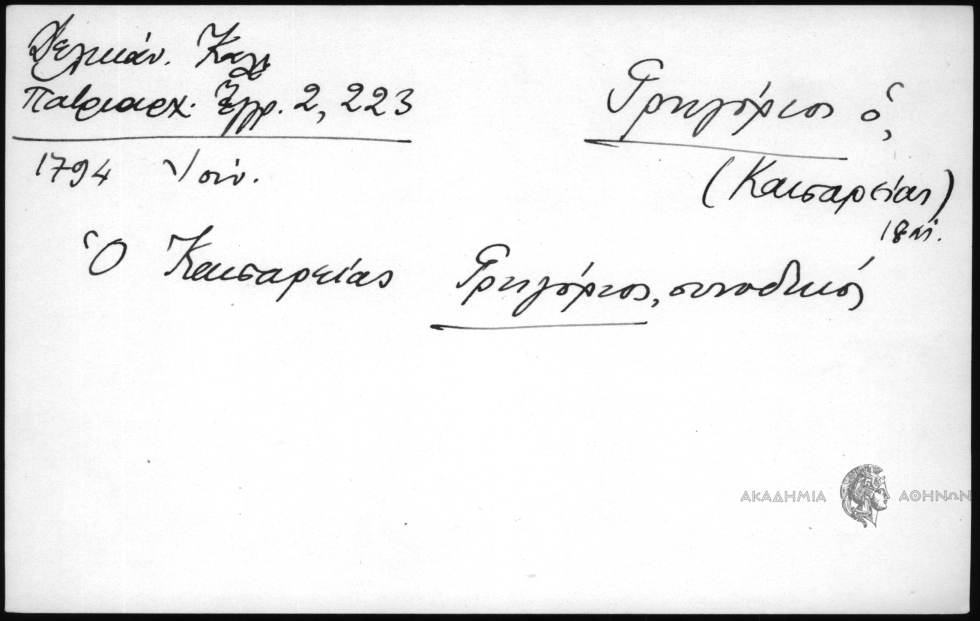 Δελικάν. Καλ
Πατριαρχ. Ἔγγρ. 2, 223
1794 Ἰούν.
Γρηγόριος ὁ,
(Καισαρείας)
18 αἰ.
Ὁ Καισαρείας Γρηγόριος, συνοδικός
ΑΚΑΔΗΜΙΑ ΑΘΗΝΩΝ